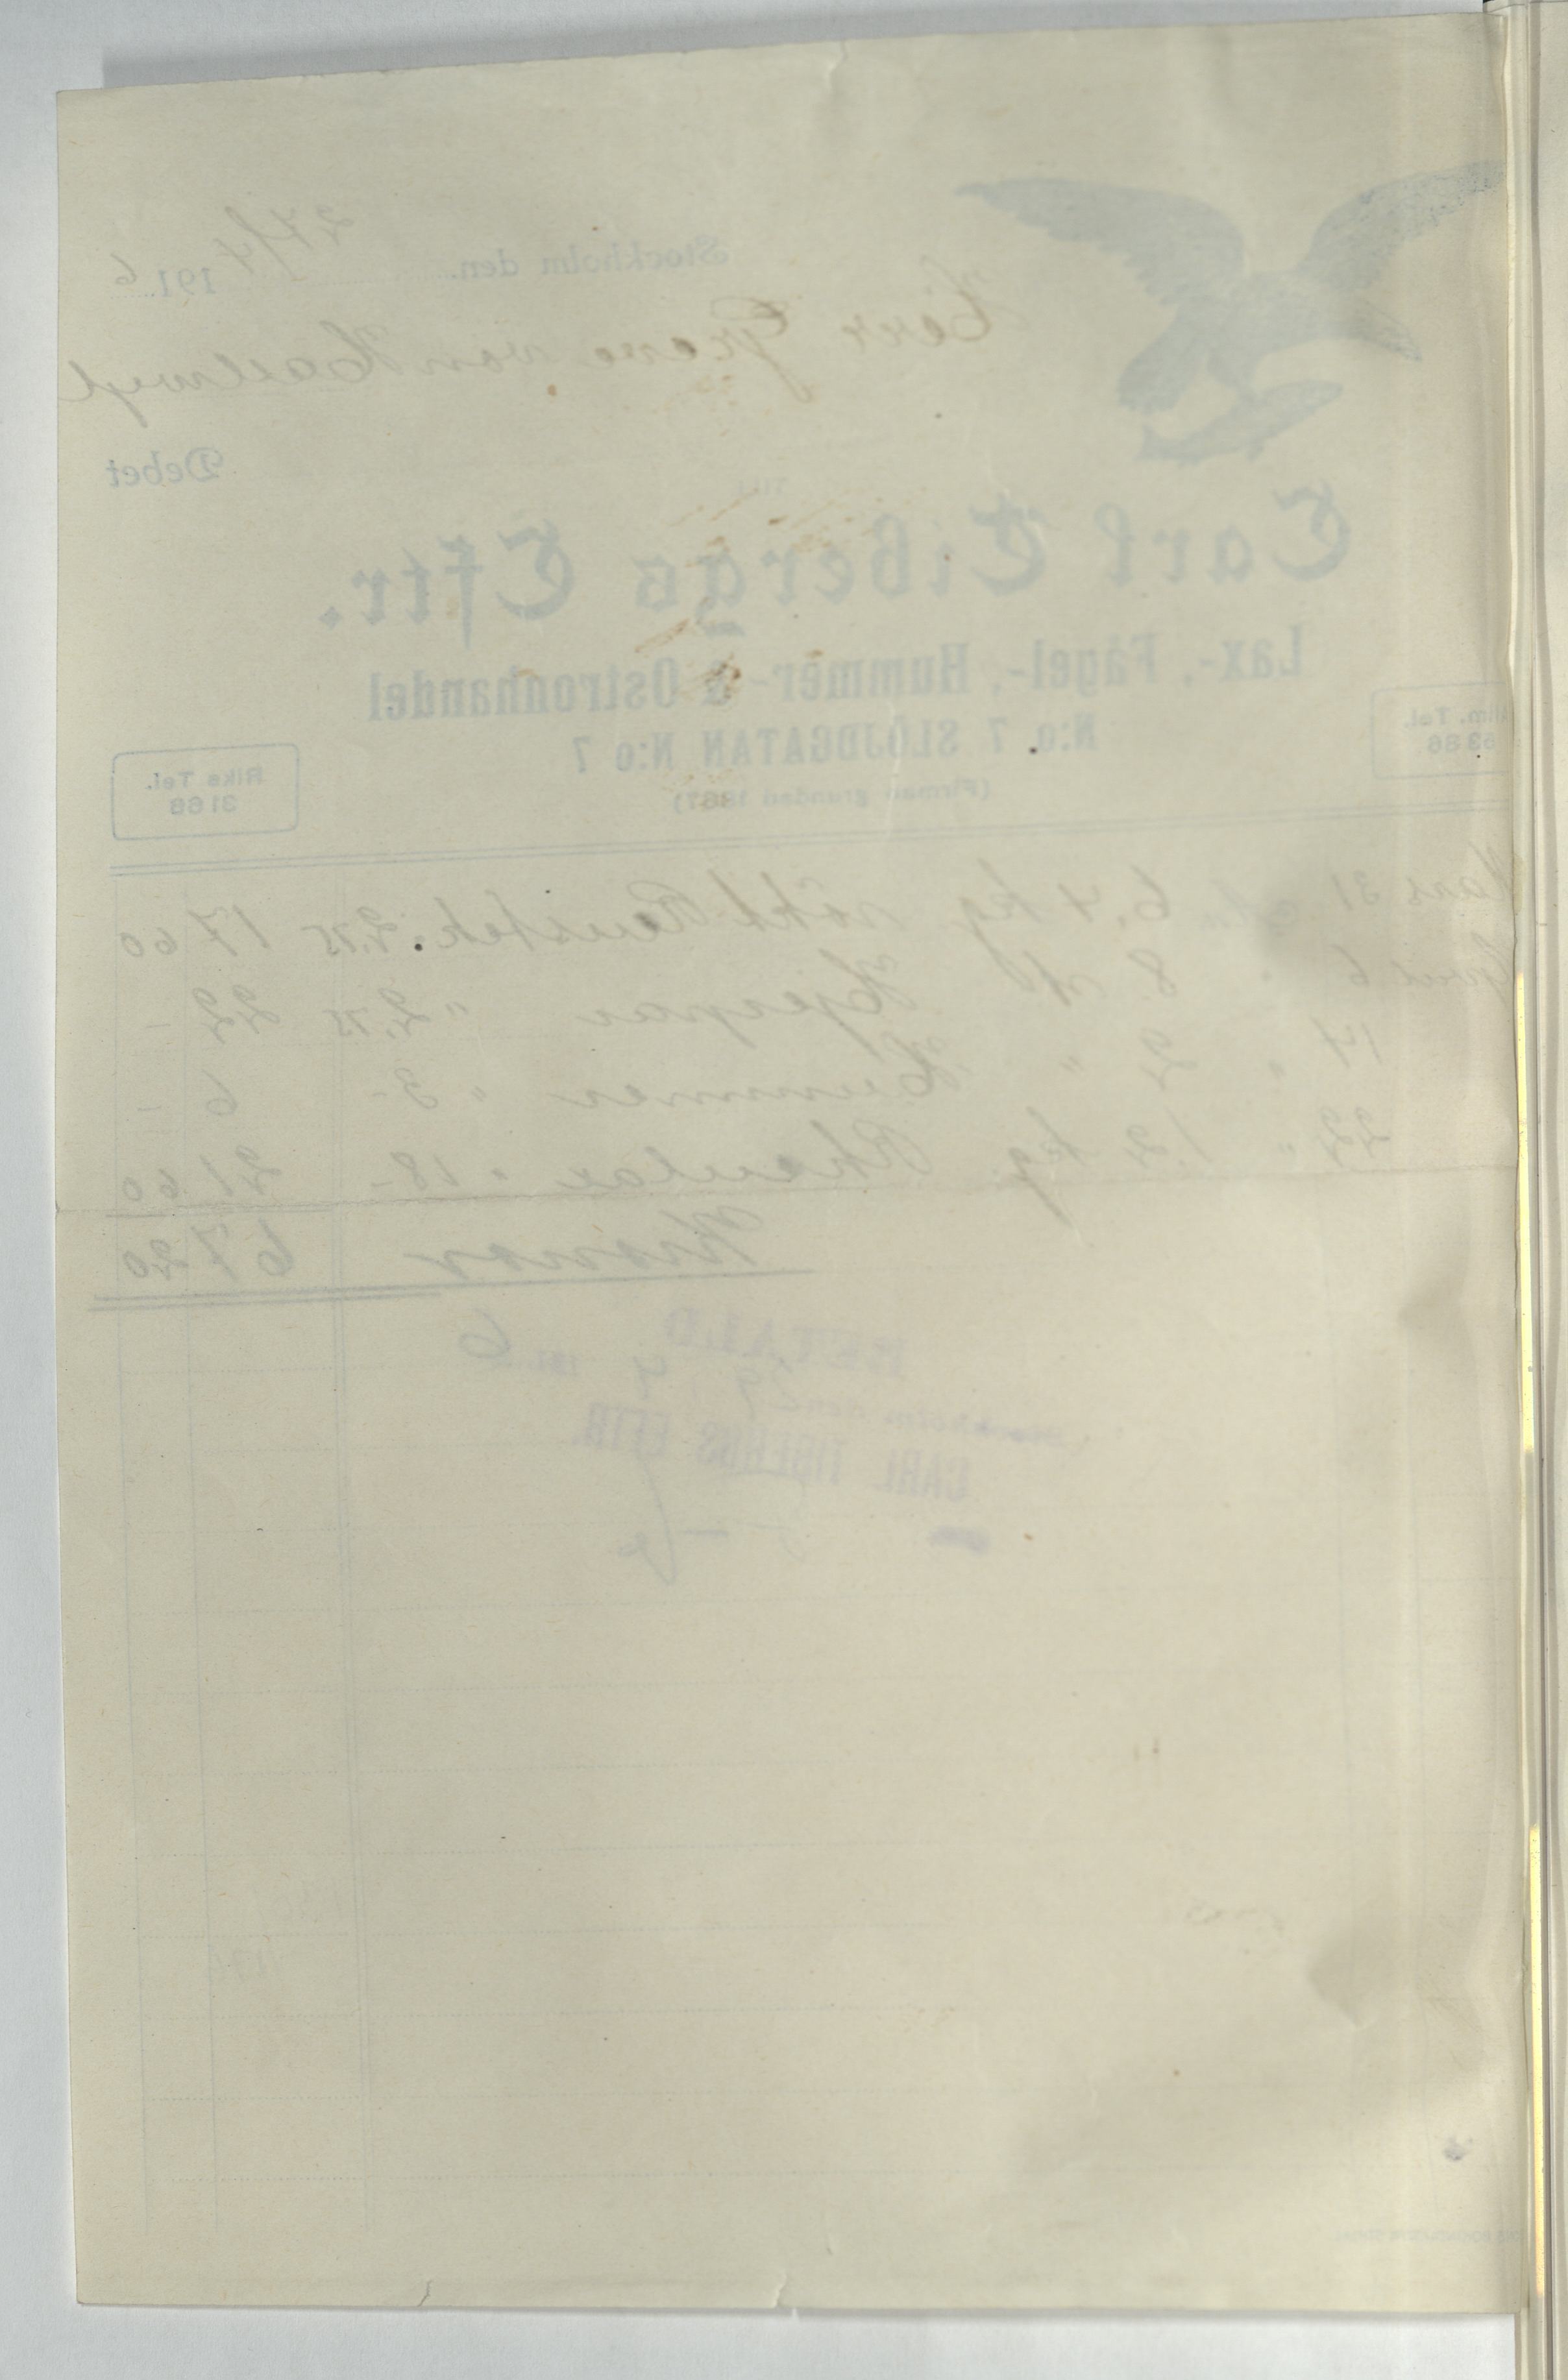 Stockholm den 27/4 1916
Herr Greve von Hallwyl
Debet
TILL
Carl Tibergs Eftr.
Lax-, Fågel-, Hummer- & Ostronhandel
N:o 7 SLÖJDGATAN N:o 7
(Firman grundad 1867)
Allm. Tel.
5386
Riks Tel.
3166
Mars 31 6,4 kg rökt Renstek 2,75 17 60
April 6 " 8 st Hjerpar " 2,75 22 -
14 " 2 " Hummer " 3- 6 -
22 " 1,2 kg Rhenlax " 18- 21 60
Kronor 67 20
BETALD
Stockholm den 29 4 1916
CARL TIBERGS EFTR.